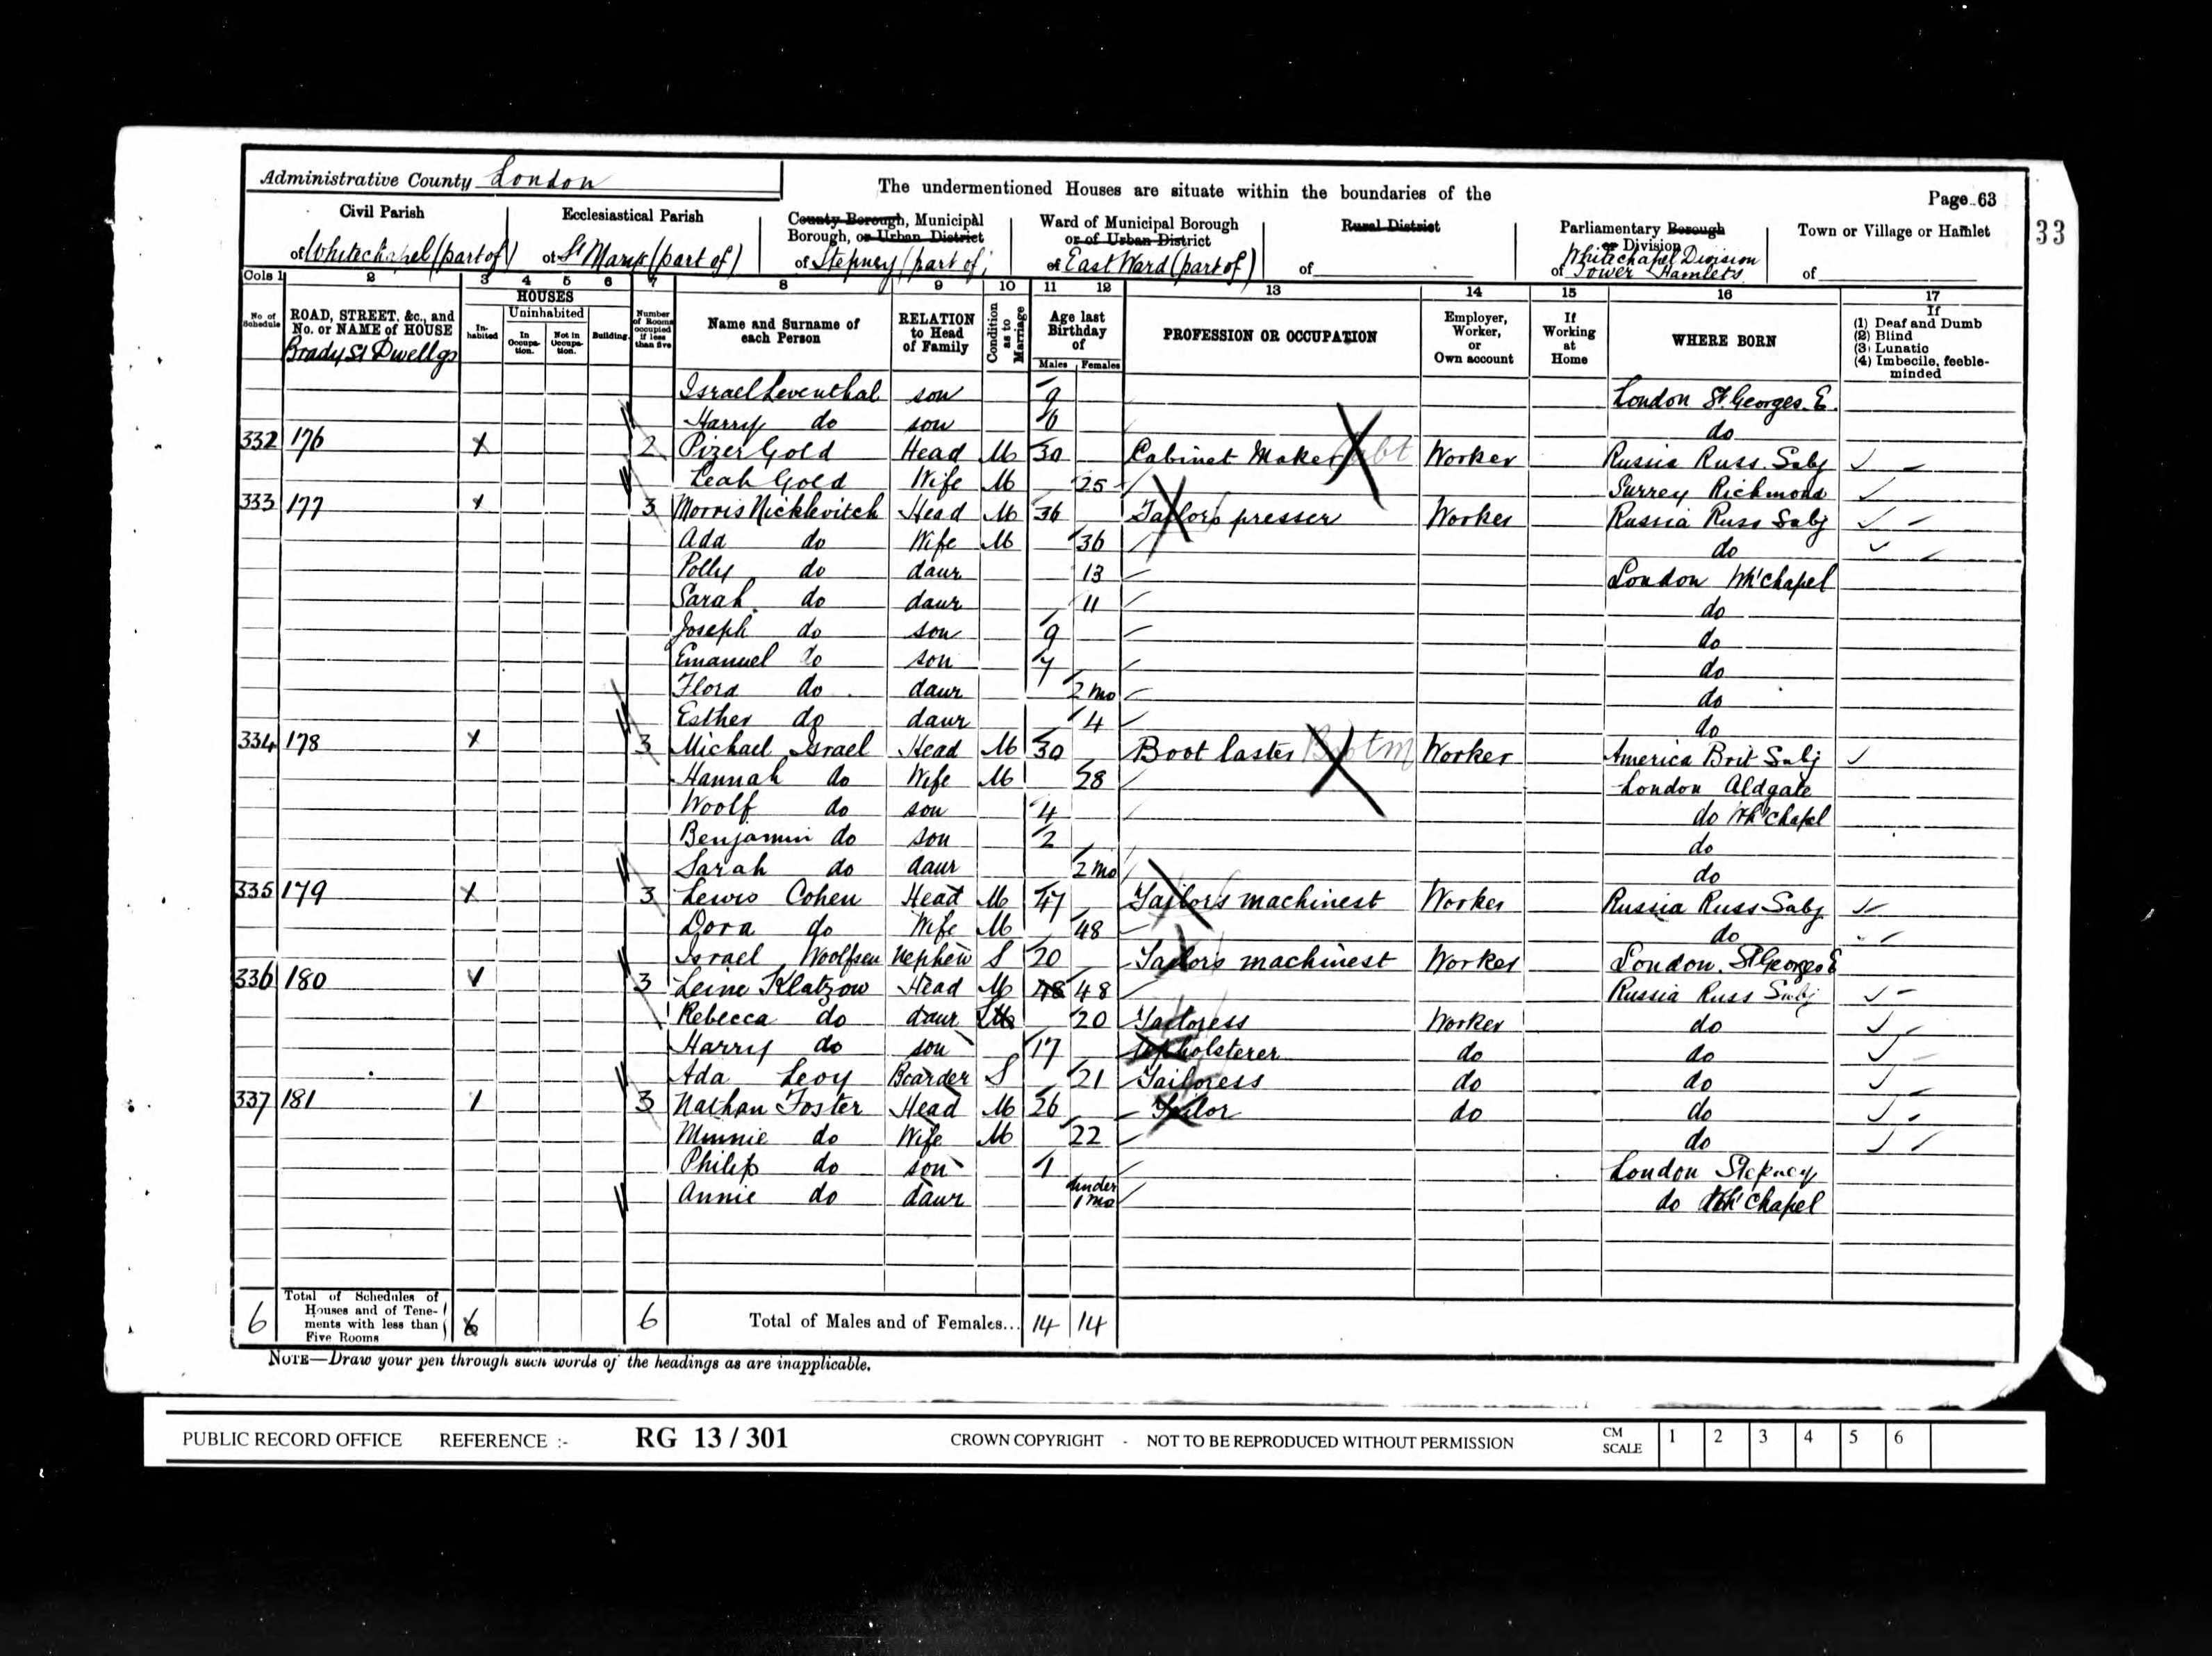 Administrative County London
The undermentioned Houses are situate within the boundaries of the
Page 63
33
Civil Parish
of Whitechapel (part of)
Ecclesiastical Parish
of St Marys (part of)
County Borough, Municipal
Borough, or Urban District
of Stepney (part of)
Ward of Municipal Borough
or of Urban District
of East Ward (part of)
Rural District
of
Parliamentary Borough
or Division
Whitechapel Division
of Tower Hamlets
Town or Village or Hamlet
of
Cols 1 2 3 4 5 6 7 8 9 10 11 12 13 14 15 16 17
No. of Schedule
ROAD, STREET, &c., and
No. or NAME of HOUSE
Brady St Dwellgs
HOUSES
Inhabited
Uninhabited
In Occupation.
Not in Occupation.
Building.
Number of Rooms occupied if less than five
Name and Surname of
each Person
RELATION
to Head
of Family
Condition as to Marriage
Age last
Birthday
of
Males Females
PROFESSION OR OCCUPATION
Employer,
Worker,
or
Own account
If
Working
at
Home
WHERE BORN
If
(1) Deaf and Dumb
(2) Blind
(3) Lunatic
(4) Imbecile, feeble-
minded
Israel Leventhal son 9 London St Georges. E.
Harry do son 6 do
332 176 X 2 Pizer Gold Head M 30 Cabinet Maker Worker Russia Russ. Subj
Leah Gold Wife M 25 Surrey Richmond
333 177 X 3 Morris Nicklevitch Head M 36 Tailors presser Worker Russia Russ Subj
Ada do Wife M 36 do
Polly do daur 13 London Wh'chapel
Sarah do daur 11 do
Joseph do son 9 do
Emanuel do son 7 do
Flora do daur 2 mo do
Esther do daur 4 do
334 178 X 3 Michael Israel Head M 30 Boot laster Worker America Brit Subj
Hannah do Wife M 28 London Aldgate
Woolf do son 4 do Wh'chapel
Benjamin do son 2 do
Sarah do daur 2 mo do
335 179 X 3 Lewis Cohen Head M 47 Tailors machinest Worker Russia Russ Subj
Dora do Wife M 48 do
Israel Woolfsen Nephew S 20 Tailors machinest Worker London. St Georges E
336 180 X 3 Leine Klatzow Head M 48 48 Russia Russ Subj
Rebecca do daur 20 Tailoress Worker do
Harry do son 17 Upholsterer do do
Ada Levy Boarder S 21 Tailoress do do
337 181 1 3 Nathan Foster Head M 26 Tailor do do
Minnie do Wife M 22 do
Philip do son 1 London Stepney
Annie do daur under 1 mo do Wh'Chapel
6
Total of Schedules of
Houses and of Tene-
ments with less than
Five Rooms
6
6
Total of Males and of Females...
14 14
NOTE—Draw your pen through such words of the headings as are inapplicable.
PUBLIC RECORD OFFICE REFERENCE :- RG 13 / 301 CROWN COPYRIGHT - NOT TO BE REPRODUCED WITHOUT PERMISSION CM SCALE 1 2 3 4 5 6